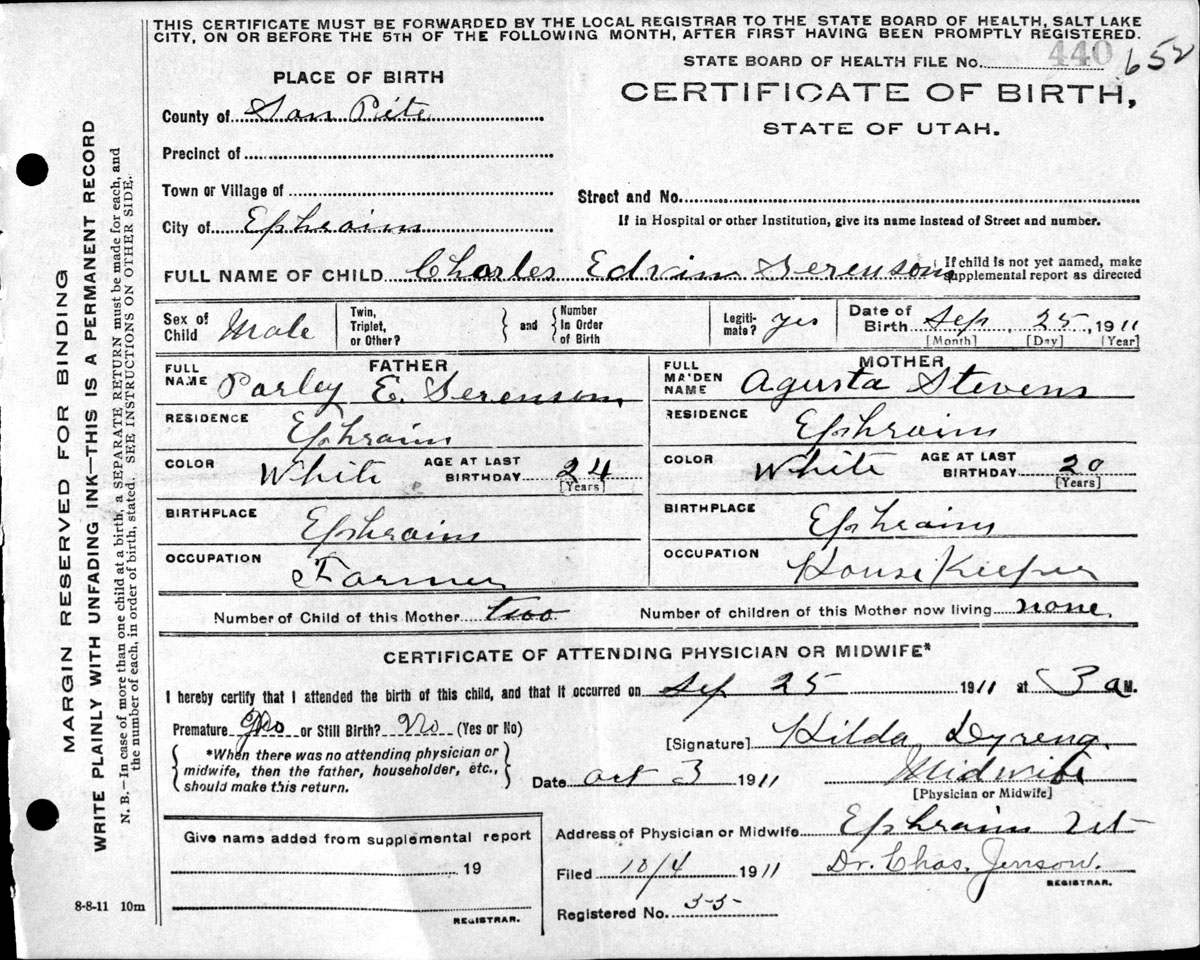 THIS CERTIFICATE MUST BE FORWARDED BY THE LOCAL REGISTRAR TO THE STATE BOARD OF HEALTH, SALT LAKE
CITY, ON OR BEFORE THE 5TH OF THE FOLLOWING MONTH, AFTER FIRST HAVING BEEN PROMPTLY REGISTERED.
STATE BOARD OF HEALTH FILE NO. 440 652
PLACE OF BIRTH
CERTIFICATE OF BIRTH,
STATE OF UTAH.
County of San Pete
Precinct of
Town or Village of
Street and No.
If in Hospital or other Institution, give its name instead of Street and number.
City of Ephraim
FULL NAME OF CHILD Charles Edvin Serenson
If child is not yet named, make
supplemental report as directed
Sex of
Child Male
Twin,
Triplet,
or Other?
and
Number
In Order
of Birth
Legiti-
mate? Yes
Date of
Birth Sep, 25, 1911
[Month] [Day] [Year]
FATHER
FULL
NAME Parley E. Serenson
RESIDENCE
Ephraim
COLOR White AGE AT LAST
BIRTHDAY 24
[Years]
BIRTHPLACE
Ephraim
OCCUPATION
Farmer
MOTHER
FULL
MAIDEN
NAME Agusta Stevens
RESIDENCE
Ephraim
COLOR White AGE AT LAST
BIRTHDAY 20
[Years]
BIRTHPLACE
Ephraim
OCCUPATION
House Keeper
Number of Child of this Mother two Number of children of this Mother now living none
CERTIFICATE OF ATTENDING PHYSICIAN OR MIDWIFE*
I hereby certify that I attended the birth of this child, and that it occurred on Sep 25 1911 at 3 a M.
Premature No or Still Birth? No (Yes or No)
*When there was no attending physician or
midwife, then the father, householder, etc.,
should make this return.
[Signature] Hilda Dyreng
Date Oct 3 1911 Midwife
[Physician or Midwife]
Give name added from supplemental report
19
REGISTRAR.
Address of Physician or Midwife Ephraim Ut
Filed 10/4 1911 Dr. Chas. Jenson.
REGISTRAR.
Registered No. 55
8-8-11 10m
MARGIN RESERVED FOR BINDING
WRITE PLAINLY WITH UNFADING INK—THIS IS A PERMANENT RECORD
N. B.—In case of more than one child at a birth, a SEPARATE RETURN must be made for each, and
the number of each, in order of birth, stated. SEE INSTRUCTIONS ON OTHER SIDE.